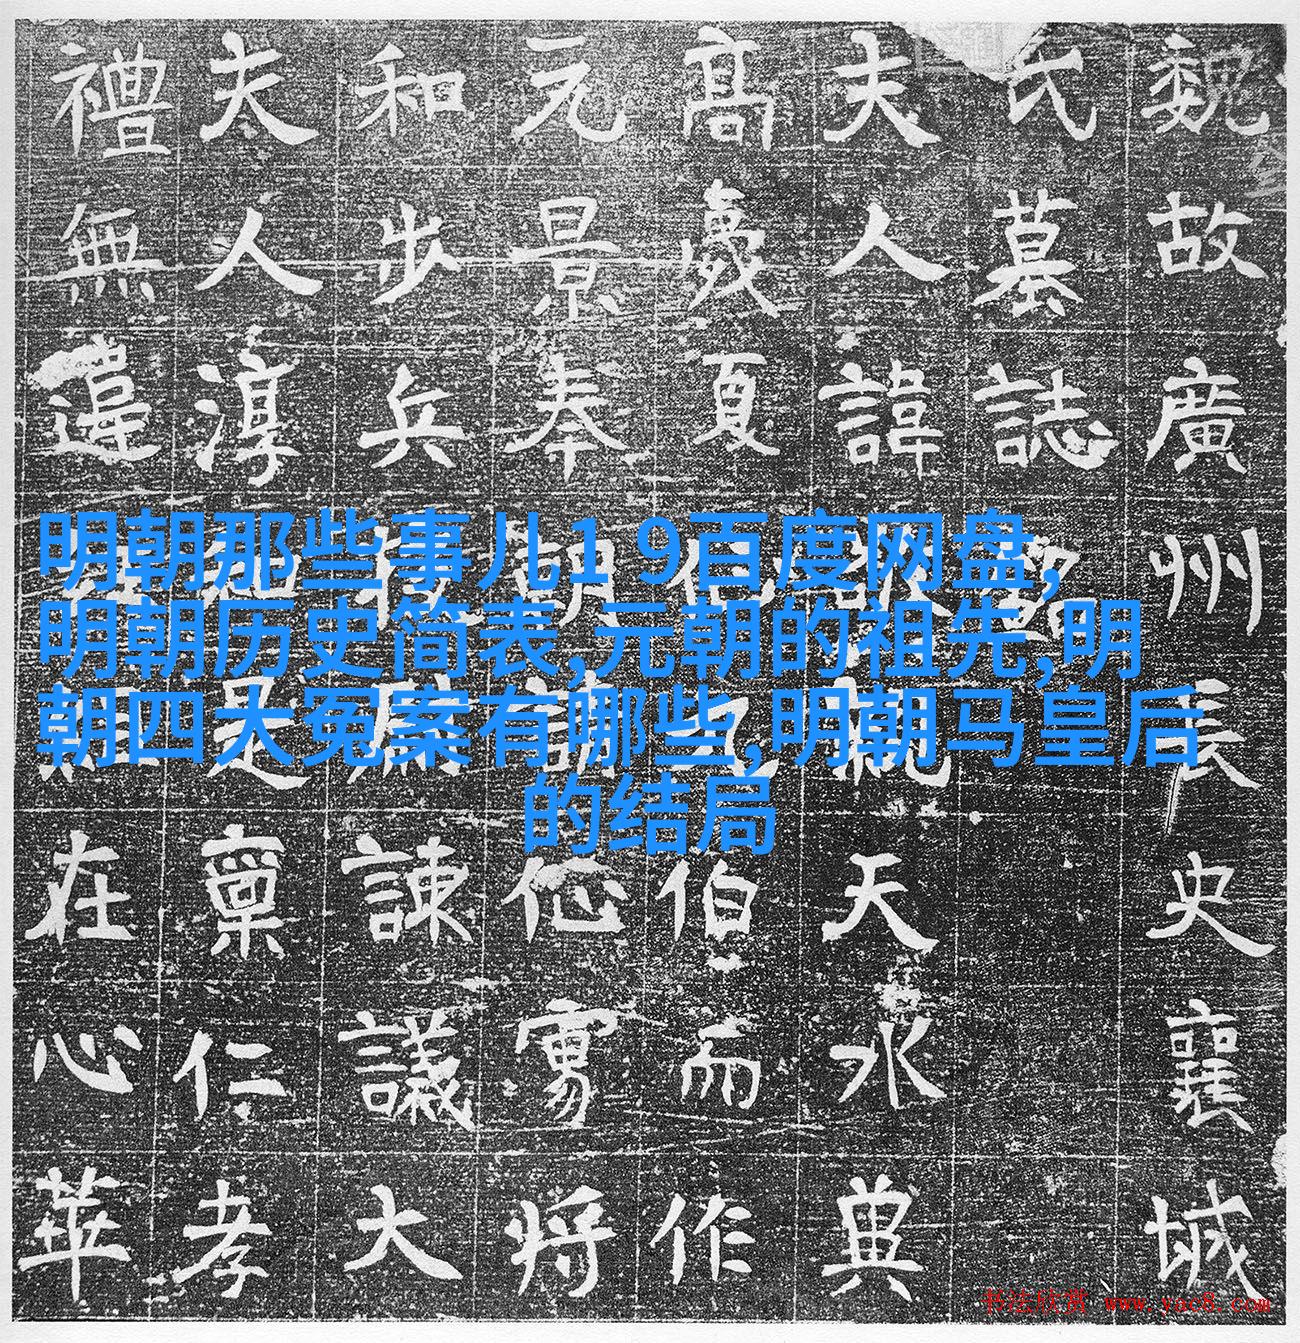 明朝那些事儿1 9百度网盘,
明朝历史简表,元朝的祖先,明
朝四大冤案有哪些,明朝马皇后
的结局
魏故廣州長史襄城
氏墓誌
夫人諱天水
高夏伯而作
元景奉朝請将
和步兵校尉諫議大
夫人淳和是稟仁孝
禮無違在心華
书法欣赏 www.yac8.com